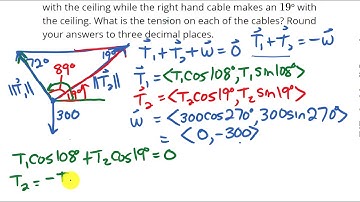 with the ceiling while the right hand cable makes an 19° with
the ceiling. What is the tension on each of the cables? Round
your answers to three decimal places.
T₁ + T₂ + w = 0
T₁ + T₂ = -w
72°
89°
19°
19°
‖T₁‖
‖T₂‖
300
T₁ = <T₁cos108°, T₁sin108°>
T₂ = <T₂cos19°, T₂sin19°>
w = <300cos270°, 300sin270°>
= <0, -300>
T₁cos108° + T₂cos19° = 0
T₂ = -T